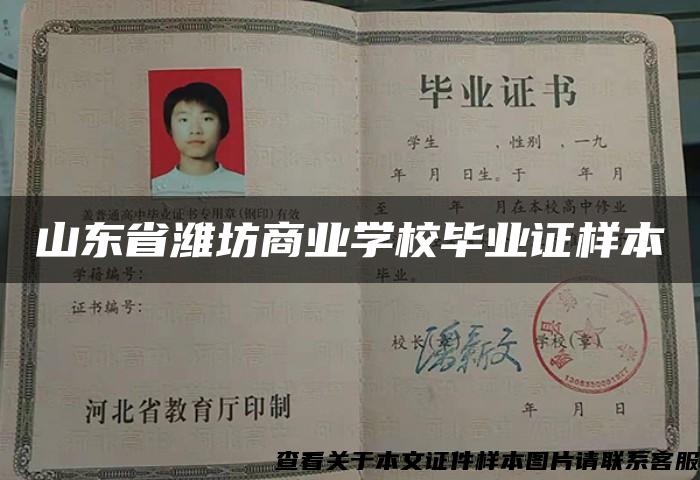 毕业证书
学生 ,性别 ,一九
年 月 日生。于 年 月
至 年 月在本校高中修业
盖普通高中毕业证书专用章(钢印)有效
山东省潍坊商业学校毕业证样本
学籍编号:
毕业。
证书编号:
校长(章)
学校(章)
河北省教育厅印制
年 月 日
查看关于本文证件样本图片请联系客服